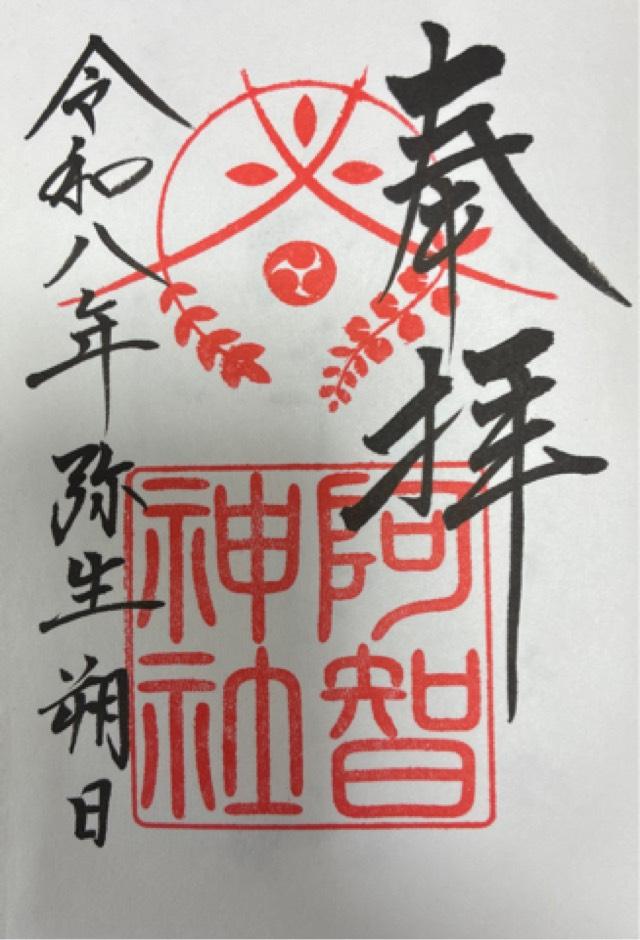 奉拝
阿智
神社
令和八年弥生朔日